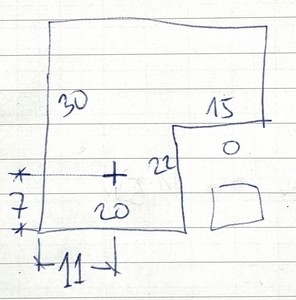 30
15
22
0
7
20
11